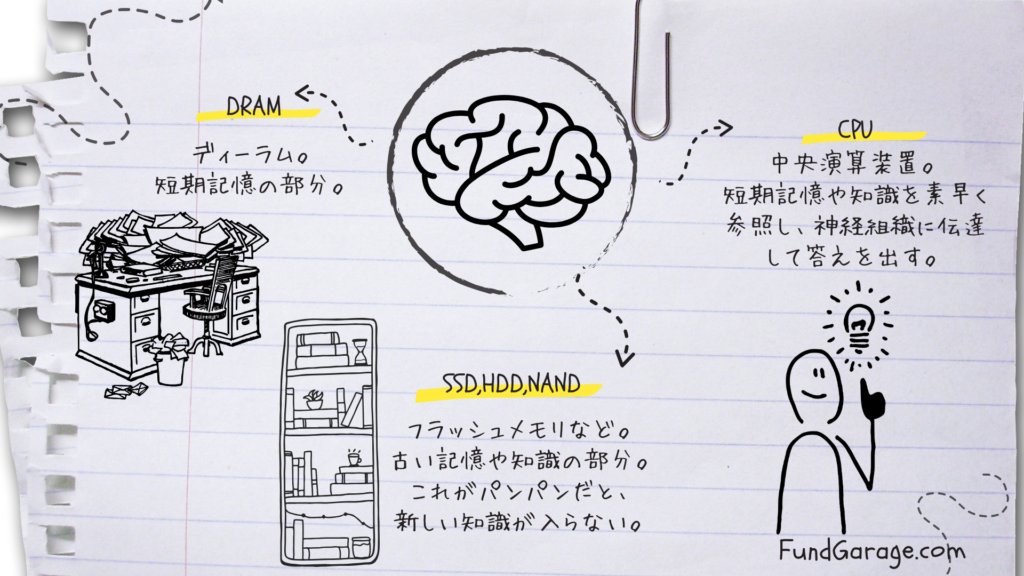 DRAM
ディーラム。
短期記憶の部分。
CPU
中央演算装置。
短期記憶や知識を素早く
参照し、神経組織に伝達
して答えを出す。
SSD,HDD,NAND
フラッシュメモリなど。
古い記憶や知識の部分。
これがパンパンだと、
新しい知識が入らない。
FundGarage.com